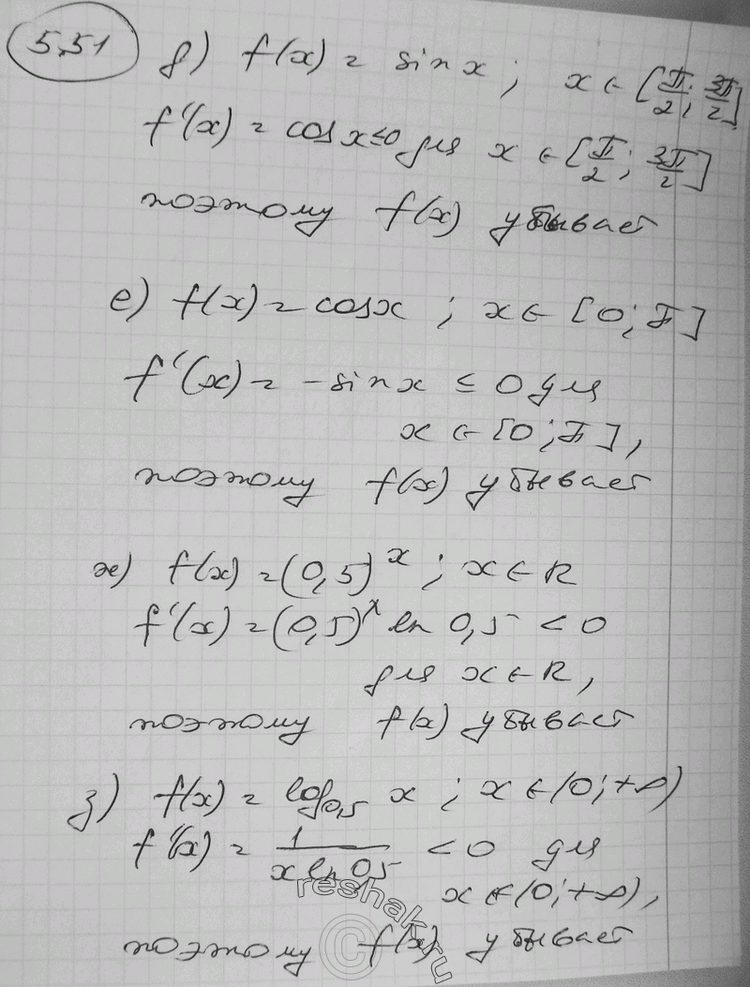 5.51 д) f(x) = sin x ; x ∈ [π/2; 3π/2]
f'(x) = cos x ≤ 0 для x ∈ [π/2; 3π/2]
поэтому f(x) убывает
е) f(x) = cos x ; x ∈ [0; π]
f'(x) = -sin x ≤ 0 для
x ∈ [0; π],
поэтому f(x) убывает
ж) f(x) = (0,5)^x ; x ∈ R
f'(x) = (0,5)^x ln 0,5 < 0
для x ∈ R,
поэтому f(x) убывает
з) f(x) = log_0,5 x ; x ∈ (0; +∞)
f'(x) = 1/(x ln 0,5) < 0 для
x ∈ (0; +∞),
поэтому f(x) убывает
reshak.ru
©